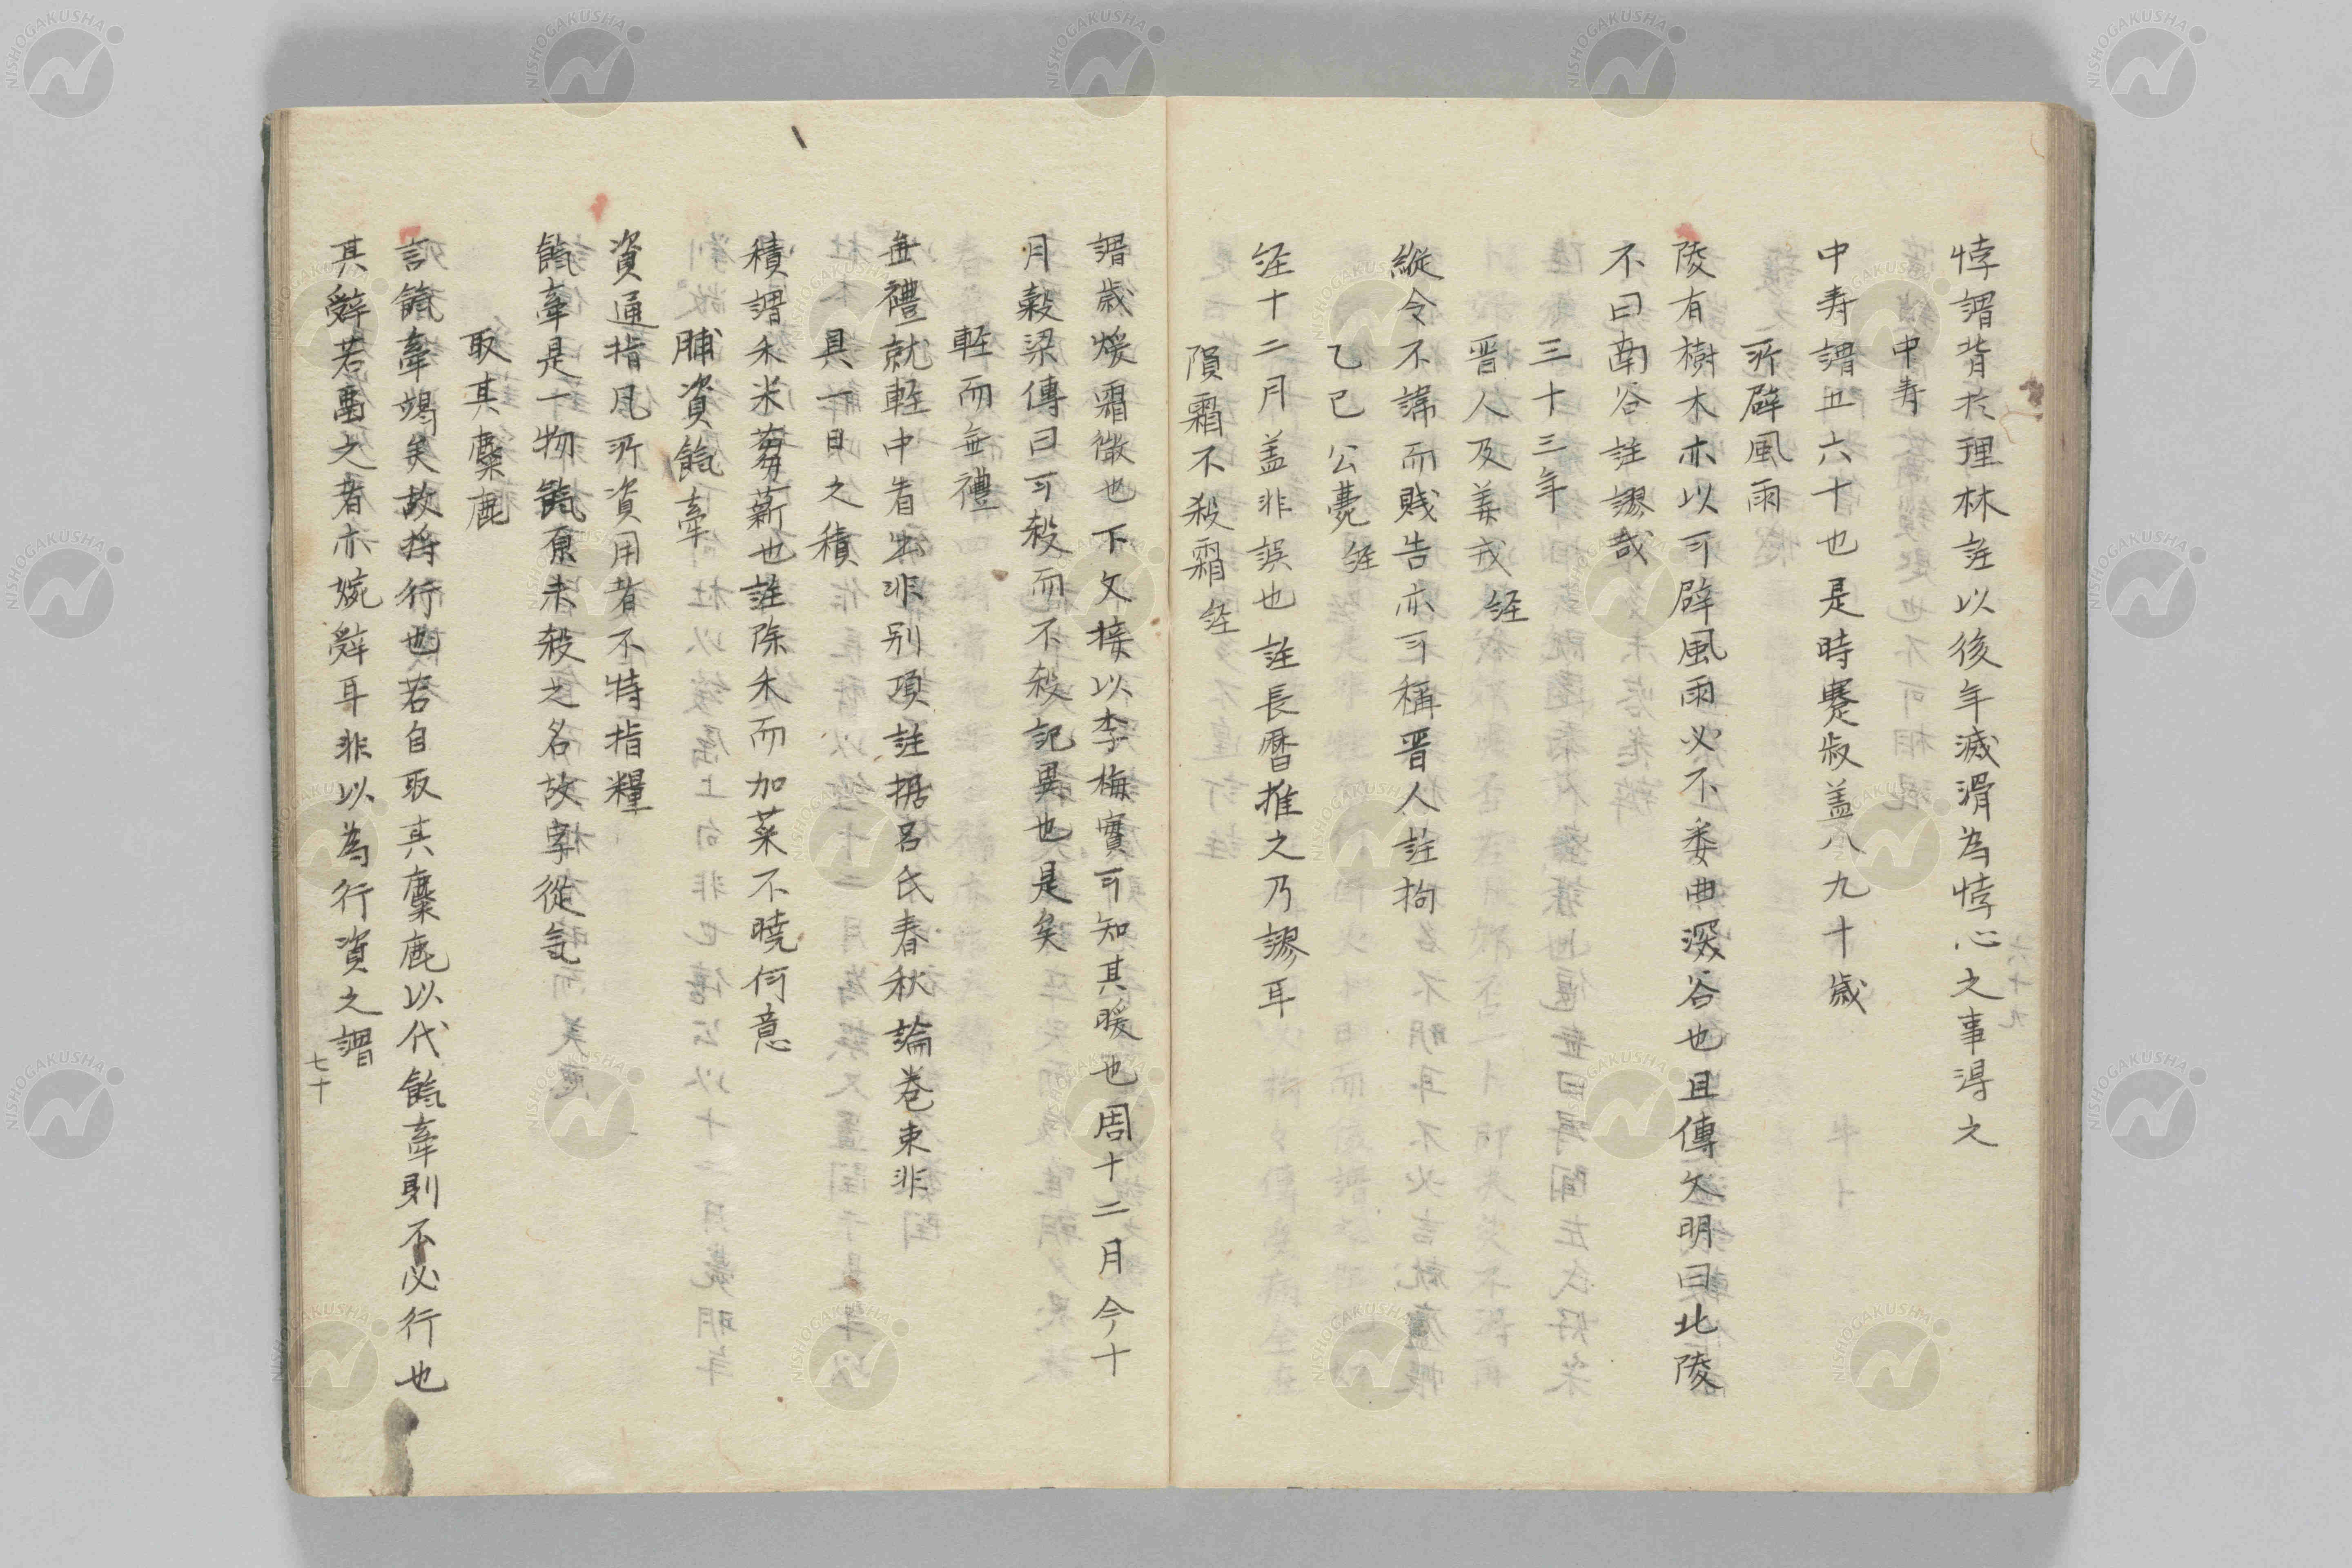 悖謂背於理林註以後年滅滑為悖心之事得之
中寿
中寿謂五六十也是時蹇叔盖八九十歳
所辟風雨
陵有樹木木以可辟風雨必不委曲深谷也且傳欠明曰北陵
不曰南谷註謬哉
三十三年
晋人及姜戎 経
縦令不諱而賎告亦可稱晋人註拘
乙巳公薨 経
経十二月盖非誤也註長暦推之乃謬耳
隕霜不殺霜 経
謂歳煖霜微也下文接以李梅實可知其暖也周十二月今十
月穀梁傳曰可殺而不殺記異也是矣
軽而無禮
無禮就軽中看出非別項註据呂氏春秋論巻束非
具一日之積
積謂禾米芻薪也註除禾而加菜不曉何意
脯資餼牽
資通指凡所資用者不特指糧
餼牽是一物餼原未殺之名故字從気
取其麋鹿
言餼牽竭矣故将行也若自取其麋鹿以代餼牽則不必行也
其辭若啚之者亦婉辭耳非以為行資之謂
七十
NISHOGAKUSHA